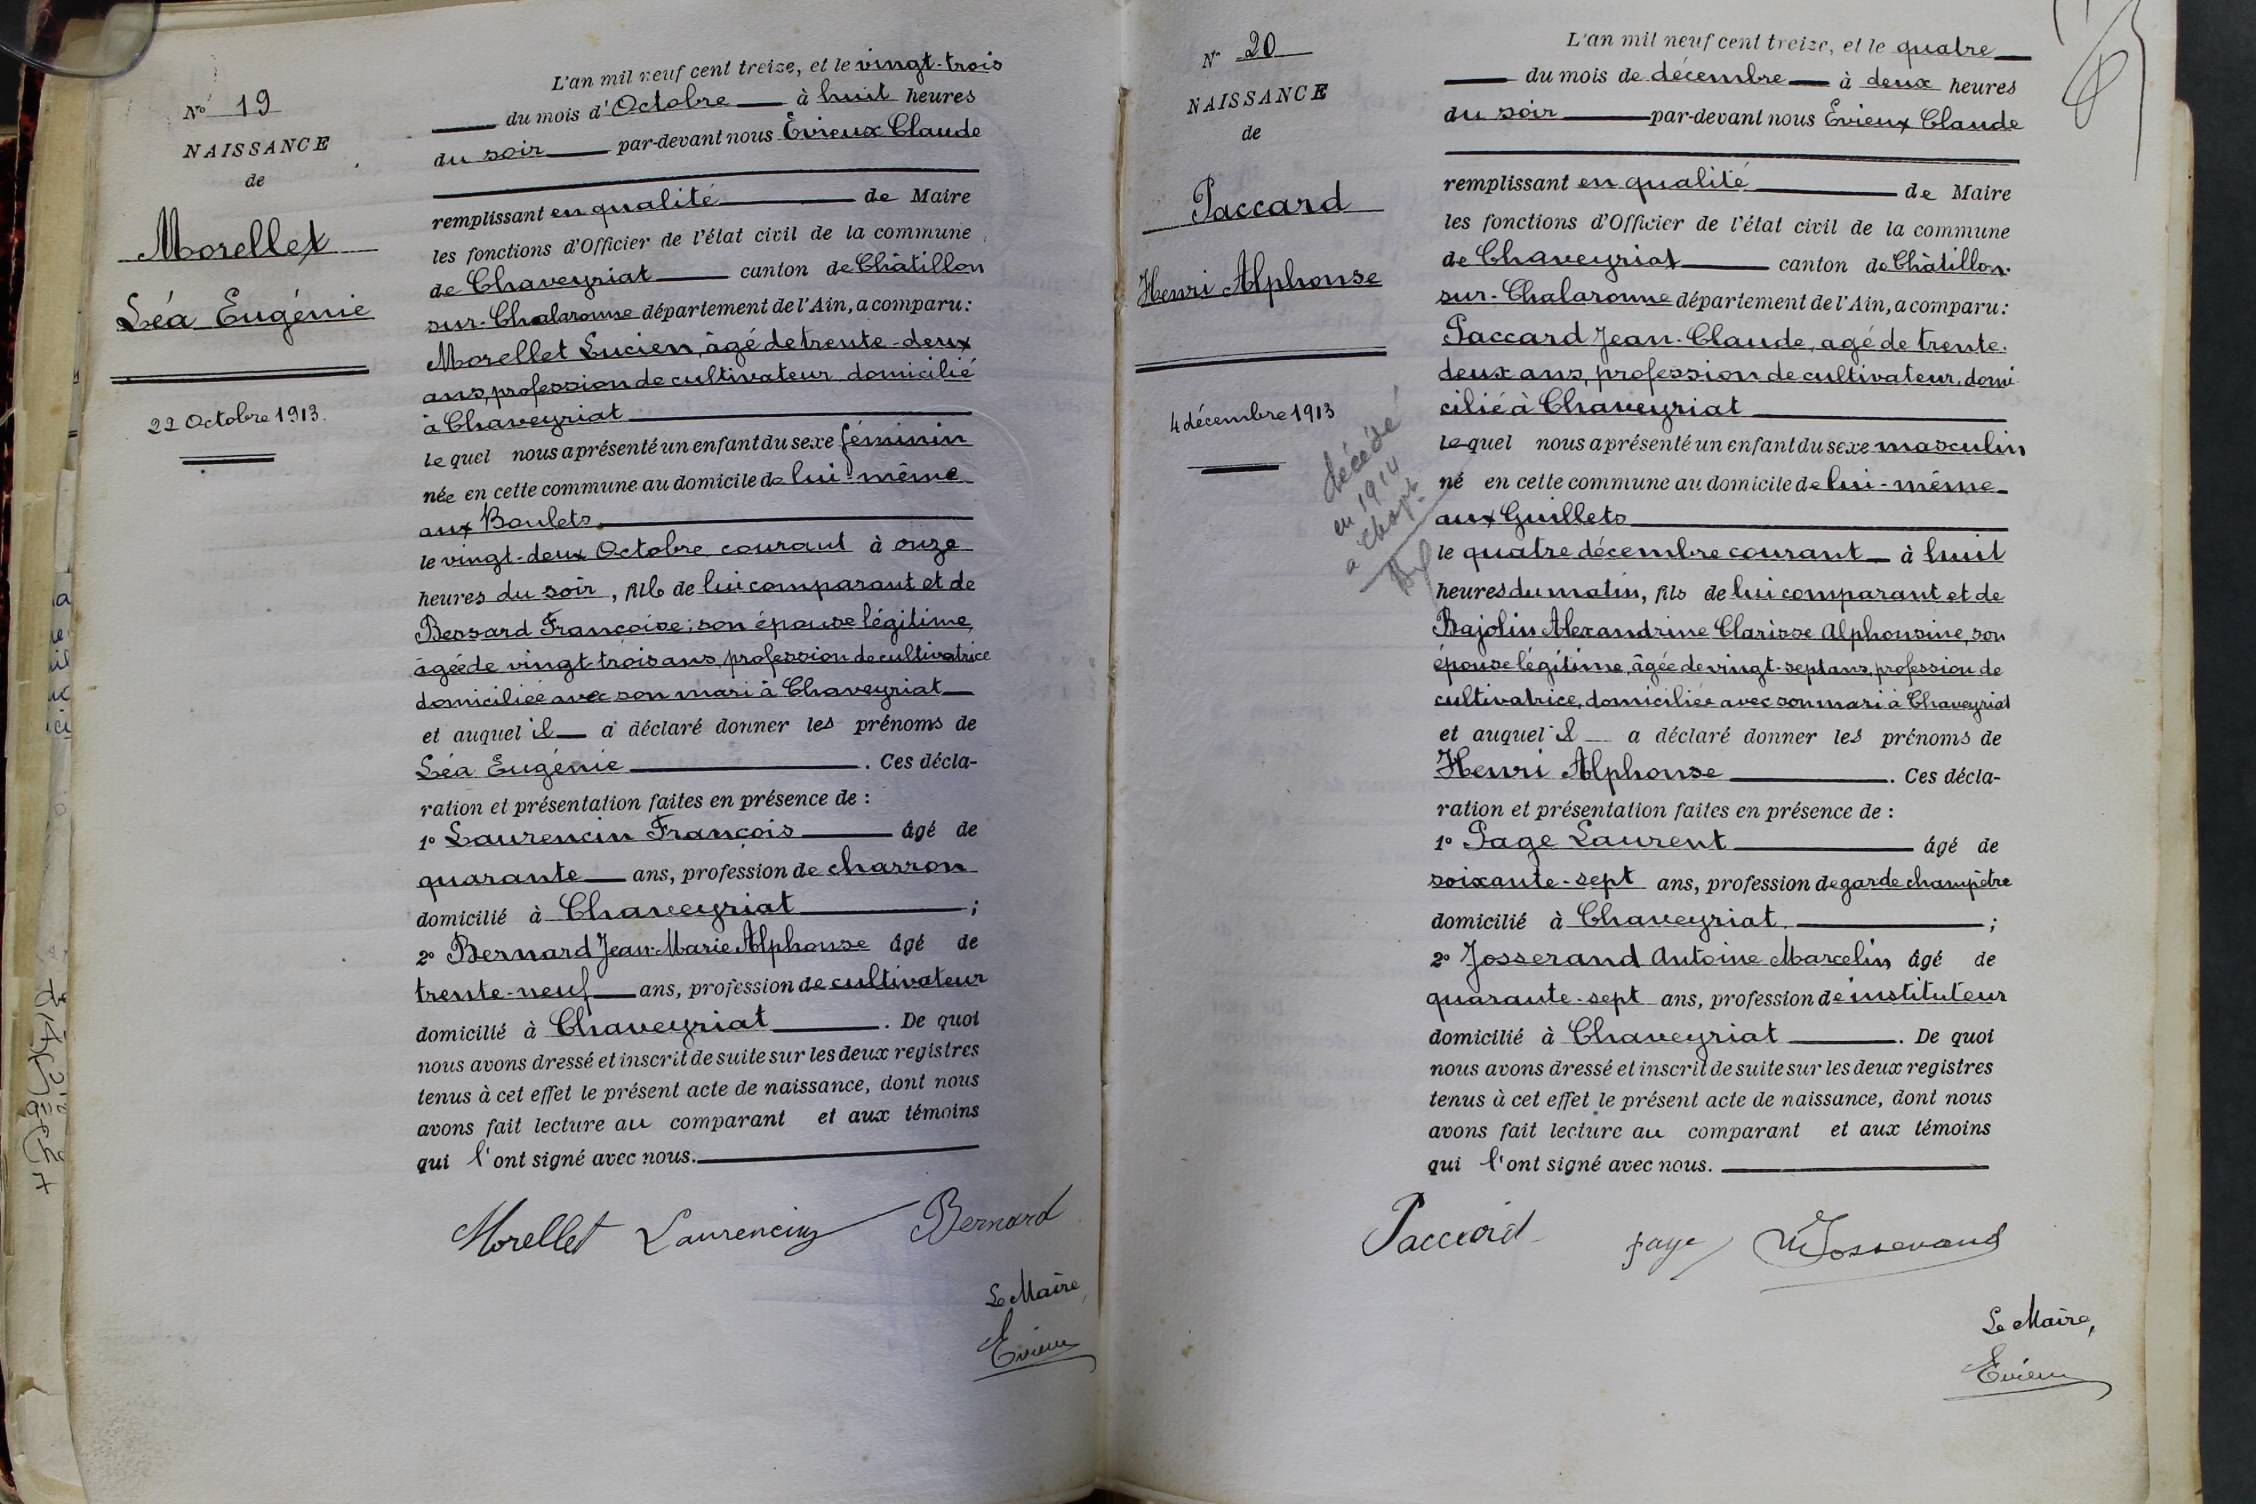 N° 19
NAISSANCE
de
Morellet
Léa Eugénie
22 Octobre 1913.
L'an mil neuf cent treize, et le vingt-trois
du mois d'Octobre à huit heures
du soir par-devant nous Evieux Claude
remplissant en qualité de Maire
les fonctions d'Officier de l'état civil de la commune
de Chaveyriat canton de Châtillon
sur-Chalaronne département de l'Ain, a comparu:
Morellet Lucien, âgé de trente-deux
ans, profession de cultivateur domicilié
à Chaveyriat
lequel nous a présenté un enfant du sexe féminin
née en cette commune au domicile de lui-même
aux Boulets
le vingt-deux Octobre courant à onze
heures du soir, fille de lui comparant et de
Bessard Françoise; son épouse légitime,
âgée de vingt trois ans, profession de cultivatrice
domiciliée avec son mari à Chaveyriat
et auquel il a déclaré donner les prénoms de
Léa Eugénie. Ces décla-
ration et présentation faites en présence de :
1° Laurencin François âgé de
quarante ans, profession de charron
domicilié à Chaveyriat ;
2° Bernard Jean-Marie Alphonse âgé de
trente-neuf ans, profession de cultivateur
domicilié à Chaveyriat. De quoi
nous avons dressé et inscrit de suite sur les deux registres
tenus à cet effet le présent acte de naissance, dont nous
avons fait lecture au comparant et aux témoins
qui l'ont signé avec nous.
Morellet Laurencin Bernard
Le Maire,
Evieux
N° 20
NAISSANCE
de
Paccard
Henri Alphonse
4 décembre 1913
décédé
en 1914
a
L'an mil neuf cent treize, et le quatre
du mois de décembre à deux heures
du soir par-devant nous Evieux Claude
remplissant en qualité de Maire
les fonctions d'Officier de l'état civil de la commune
de Chaveyriat canton de Châtillon-
sur-Chalaronne département de l'Ain, a comparu:
Paccard Jean-Claude, agé de trente-
deux ans, profession de cultivateur, domi
cilié à Chaveyriat
lequel nous a présenté un enfant du sexe masculin
né en cette commune au domicile de lui-même
aux Guillets
le quatre décembre courant à huit
heures du matin, fils de lui comparant et de
Bajolin Alexandrine Clarisse Alphonsine, son
épouse légitime, âgée de vingt-sept ans, profession de
cultivatrice, domiciliée avec son mari à Chaveyriat
et auquel il a déclaré donner les prénoms de
Henri Alphonse. Ces décla-
ration et présentation faites en présence de :
1° Page Laurent âgé de
soixante-sept ans, profession de garde champêtre
domicilié à Chaveyriat ;
2° Josserand Antoine Marcelin âgé de
quarante-sept ans, profession de instituteur
domicilié à Chaveyriat. De quoi
nous avons dressé et inscrit de suite sur les deux registres
tenus à cet effet le présent acte de naissance, dont nous
avons fait lecture au comparant et aux témoins
qui l'ont signé avec nous.
Paccard page Josserand
Le Maire,
Evieux